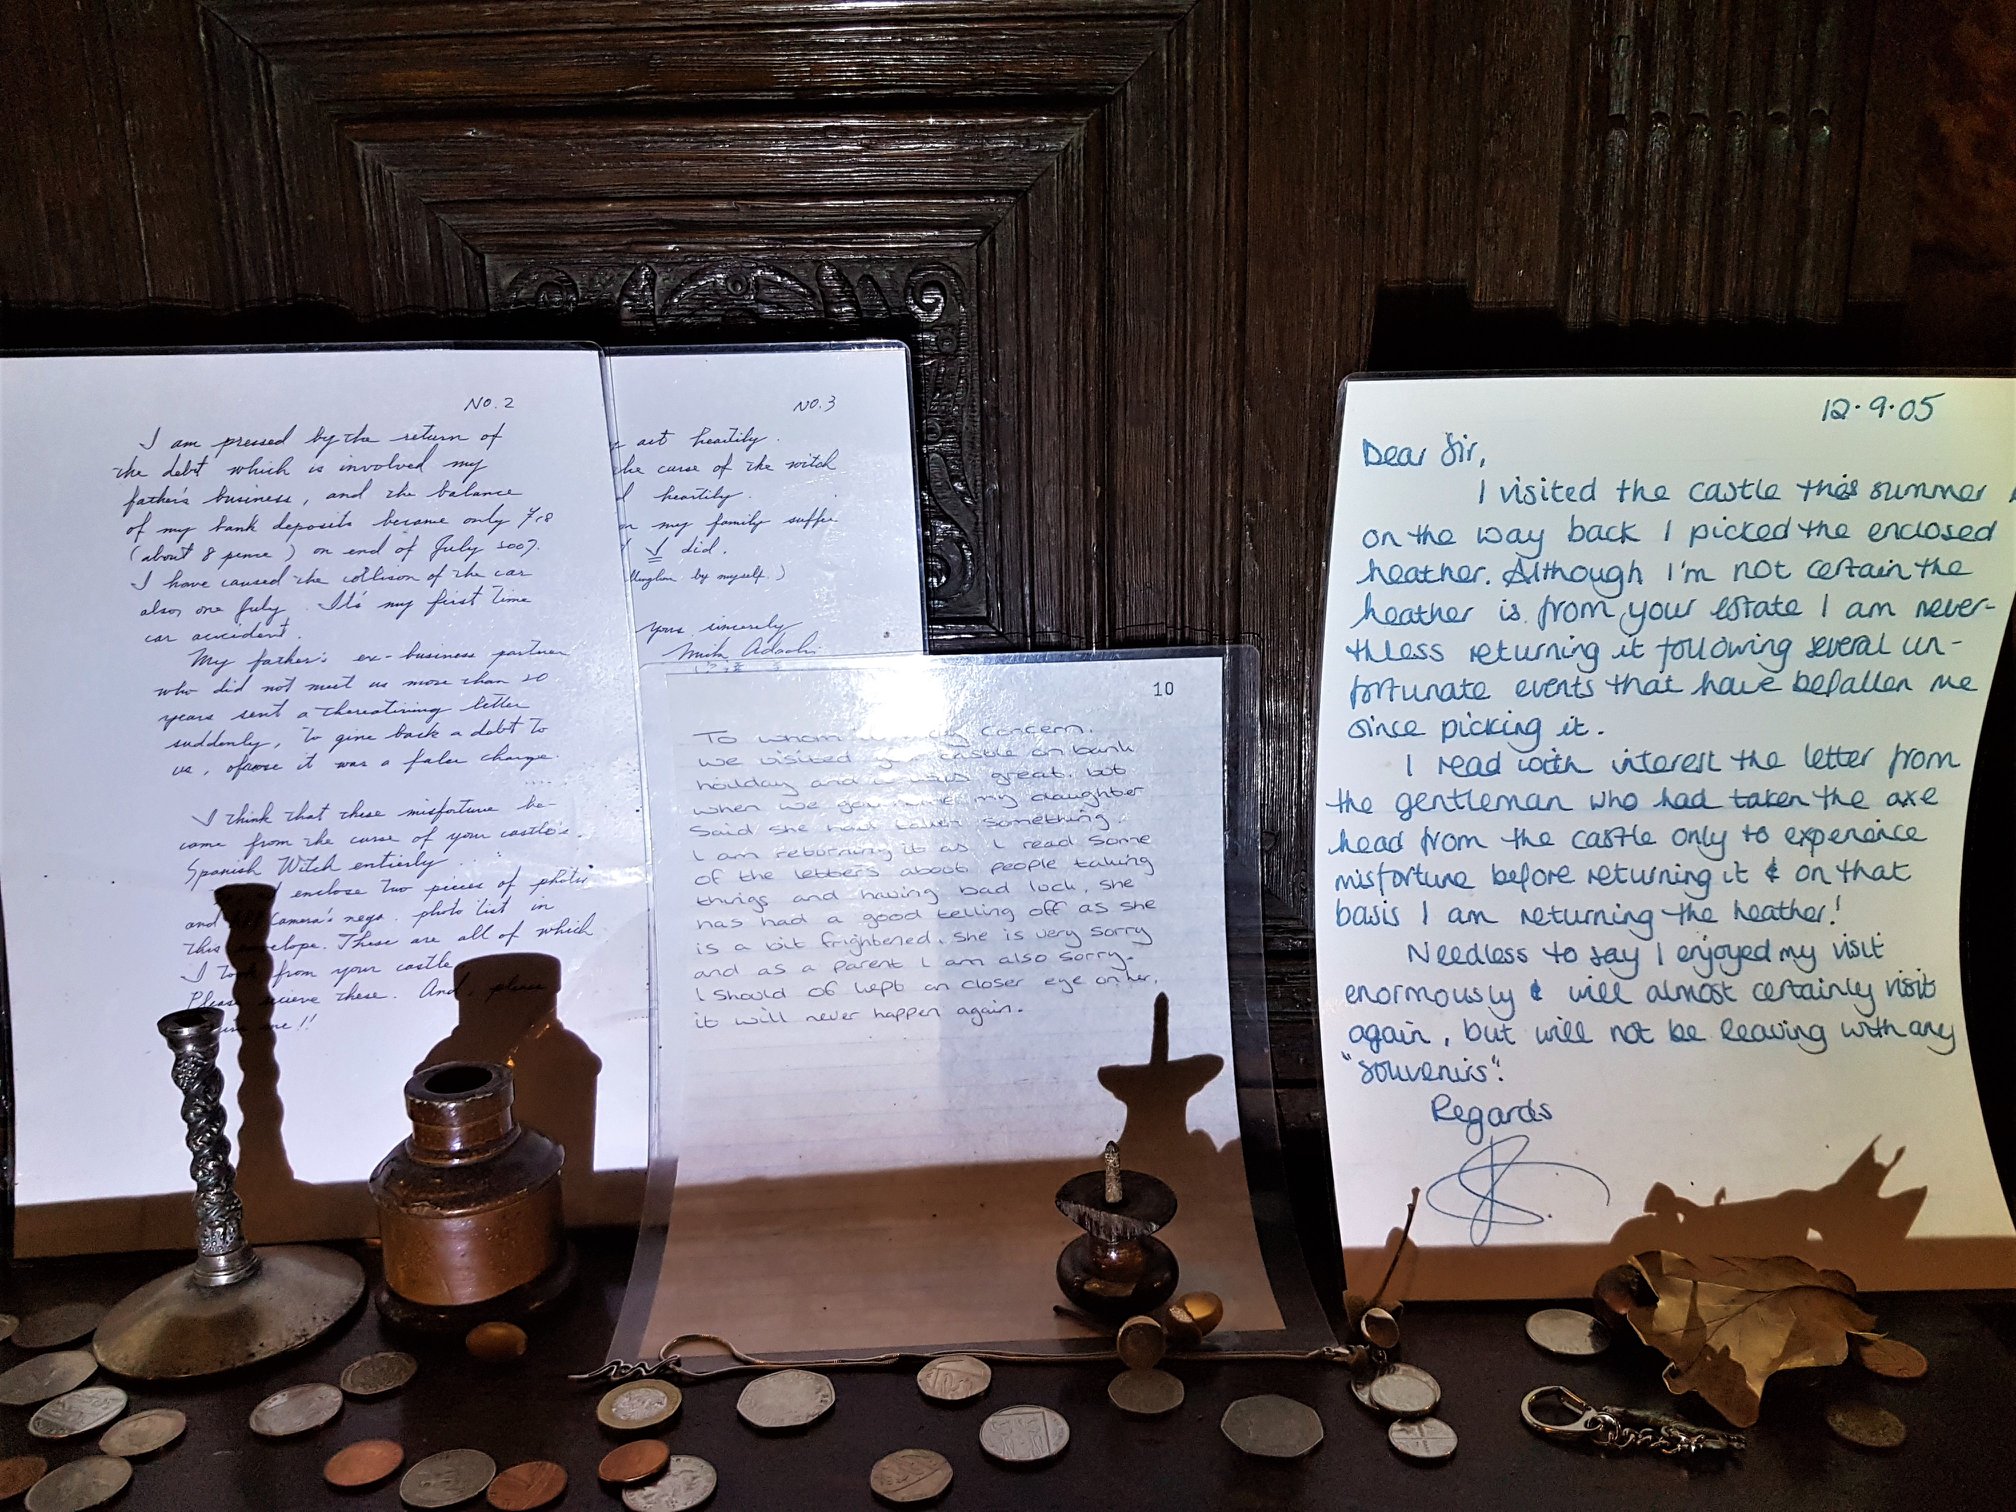 NO. 2
I am pressed by the return of
the debt which is involved my
father's business, and the balance
of my bank deposits became only
(about 8 pence) on end of July 2007.
I have caused the collison of the car
also, one July. It's my first time
car accident.
My father's ex-business partner
who did not meet us more than 20
years sent a threatining letter
suddenly, to give back a debt to
us, ofcose it was a false charge.
I think that these misfortune be-
came from the curse of your castle's
Spanish Witch entierly
enclose two pieces of photo
and camera's nega. photo list in
this envelope. These are all of which
I took from your castle
Please recieve these. And, please
me!!
NO. 3
act heartily.
the curse of the witch
heartily.
on my family suffer
I did.
by myself.)
yours sincerely
Adachi
10
To whom it may concern.
We visited your castle on bank
holiday and it was great. but
when we got home my daughter
Said she had taken something.
I am returning it as I read Some
of the letters about people taking
things and having bad luck. She
has had a good telling off as she
is a bit frightened. She is very sorry
and as a parent I am also sorry.
I should of kept an closer eye on her,
it will never happen again.
12.9.05
Dear Sir,
I visited the castle this summer
on the way back I picked the enclosed
heather. Although I'm not certain the
heather is from your estate I am never-
thless returning it following several un-
fortunate events that have befallen me
since picking it.
I read with interest the letter from
the gentleman who had taken the axe
head from the castle only to experience
misfortune before returning it & on that
basis I am returning the heather!
Needless to say I enjoyed my visit
enormously & will almost certainly visit
again, but will not be leaving with any
"souvenirs".
Regards